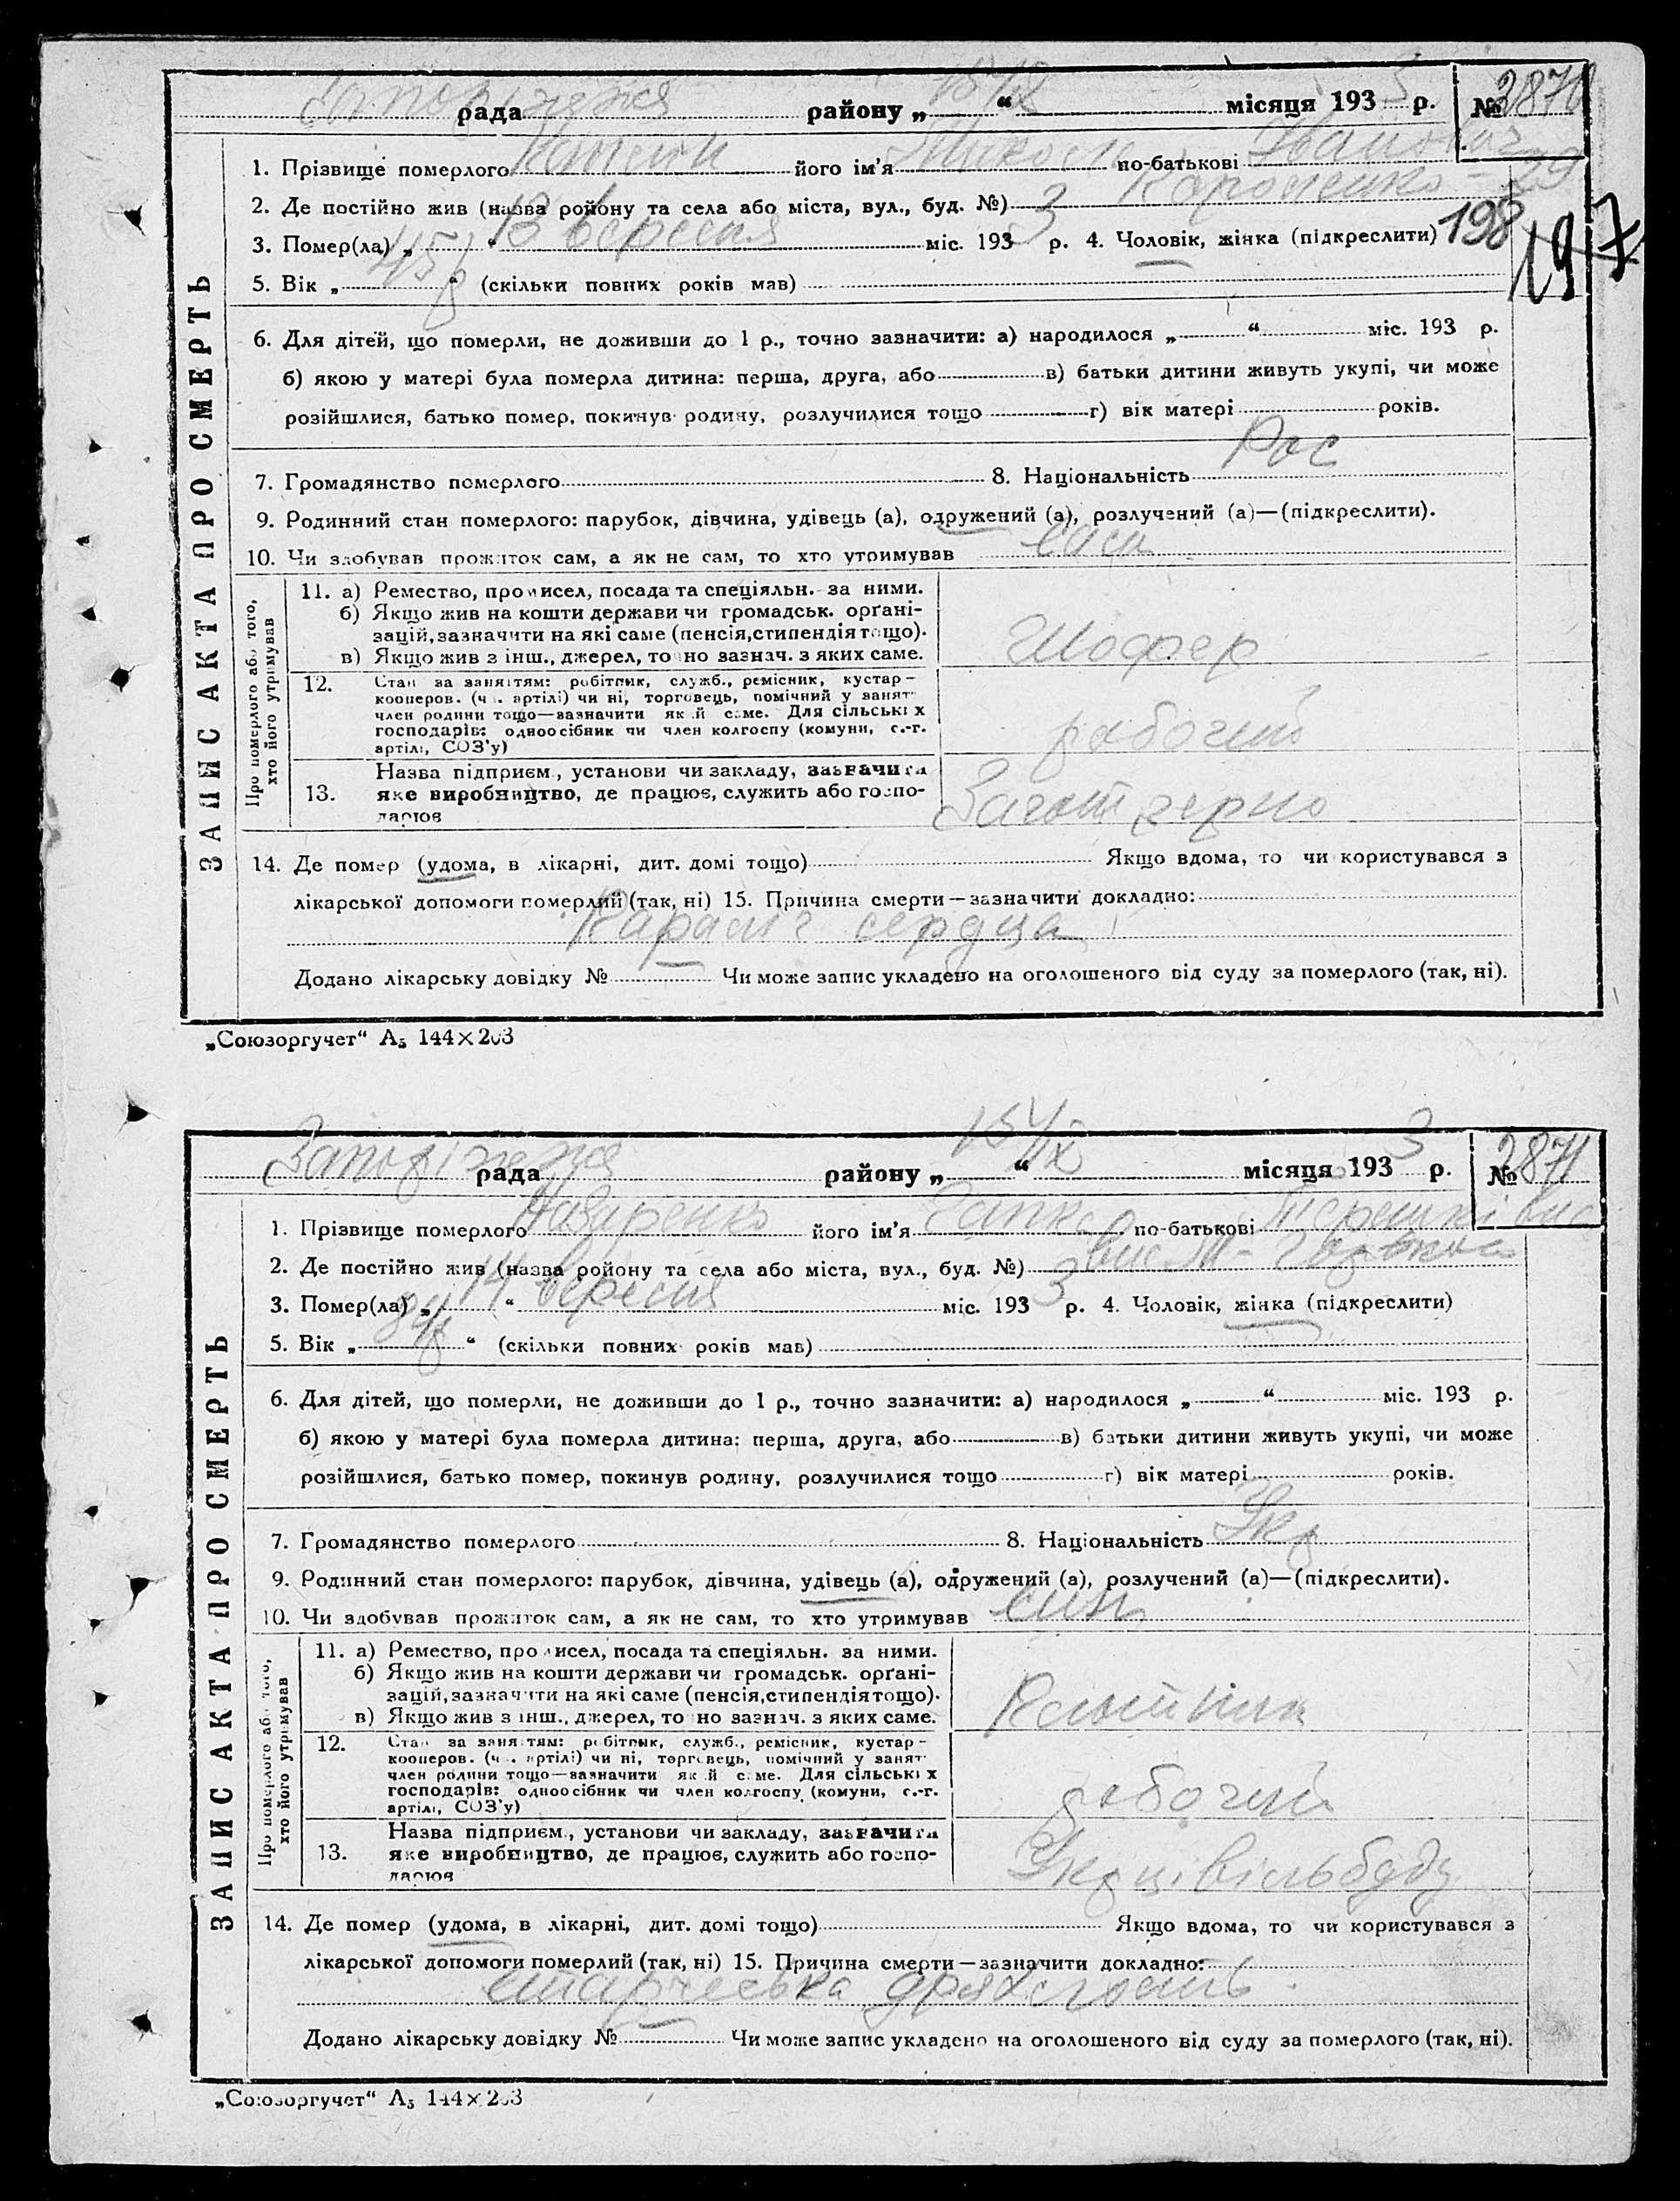 Запоріжжя рада району „ 15/IX “ місяця 193 3 р. № 2870
1. Прізвище померлого його ім'я Микола по-батькові Іванович
2. Де постійно жив (назва ройону та села або міста, вул., буд. №) Короленко - 29
3. Помер(ла) „ 13 “ вересня міс. 193 3 р. 4. Чоловік, жінка (підкреслити) 198
197
5. Вік „ 45 р “ (скільки повних років мав)
6. Для дітей, що померли, не доживши до 1 р., точно зазначити: а) народилося „ “ міс. 193 р.
б) якою у матері була померла дитина: перша, друга, або в) батьки дитини живуть укупі, чи може
розійшлися, батько помер, покинув родину, розлучилися тощо г) вік матері років.
7. Громадянство померлого 8. Національність Рос
9. Родинний стан померлого: парубок, дівчина, удівець (а), одружений (а), розлучений (а)—(підкреслити).
10. Чи здобував прожиток сам, а як не сам, то хто утримував сам
ЗАПИС АКТА ПРО СМЕРТЬ
Про померлого або того,
хто його утримував
11. а) Ремество, промисел, посада та спеціяльн. за ними.
б) Якщо жив на кошти держави чи громадськ. орґані-
зацій, зазначити на які саме (пенсія, стипендія тощо).
в) Якщо жив з інш., джерел, точно зазнач. з яких саме.
Шофер
12. Стан за заняттям: робітник, служб., ремісник, кустар–
кооперов. (чл. артілі) чи ні, торговець, помічний у занят
член родини тощо—зазначити який саме. Для сільських
господарів: одноосібник чи член колгоспу (комуни, с.-г.
артілі, СОЗ'у)
рабочий
13. Назва підприєм., установи чи закладу, зазначити
яке виробництво, де працює, служить або госпо-
дарює
Заготзерно
14. Де помер (удома, в лікарні, дит. домі тощо) Якщо вдома, то чи користувався з
лікарської допомоги померлий (так, ні) 15. Причина смерти—зазначити докладно:
Параліч сердца
Додано лікарську довідку № Чи може запис укладено на оголошеного від суду за померлого (так, ні).
„Союзоргучет“ А5 144×203
Запоріжжя рада району „ 15/IX “ місяця 193 3 р. № 2871
1. Прізвище померлого Назаренко його ім'я Гапка по-батькові
2. Де постійно жив (назва ройону та села або міста, вул., буд. №)
3. Помер(ла) „ 14 “ вересня міс. 193 3 р. 4. Чоловік, жінка (підкреслити)
5. Вік „ 84 р “ (скільки повних років мав)
6. Для дітей, що померли, не доживши до 1 р., точно зазначити: а) народилося „ “ міс. 193 р.
б) якою у матері була померла дитина: перша, друга, або в) батьки дитини живуть укупі, чи може
розійшлися, батько помер, покинув родину, розлучилися тощо г) вік матері років.
7. Громадянство померлого 8. Національність Укр
9. Родинний стан померлого: парубок, дівчина, удівець (а), одружений (а), розлучений (а)—(підкреслити).
10. Чи здобував прожиток сам, а як не сам, то хто утримував син
ЗАПИС АКТА ПРО СМЕРТЬ
Про померлого або того,
хто його утримував
11. а) Ремество, промисел, посада та спеціяльн. за ними.
б) Якщо жив на кошти держави чи громадськ. орґані-
зацій, зазначити на які саме (пенсія, стипендія тощо).
в) Якщо жив з інш., джерел, точно зазнач. з яких саме.
12. Стан за заняттям: робітник, служб., ремісник, кустар–
кооперов. (чл. артілі) чи ні, торговець, помічний у занят
член родини тощо—зазначити який саме. Для сільських
господарів: одноосібник чи член колгоспу (комуни, с.-г.
артілі, СОЗ'у)
рабочий
13. Назва підприєм., установи чи закладу, зазначити
яке виробництво, де працює, служить або госпо-
дарює
Укрцівільбуду
14. Де помер (удома, в лікарні, дит. домі тощо) Якщо вдома, то чи користувався з
лікарської допомоги померлий (так, ні) 15. Причина смерти—зазначити докладно:
старческа дряхлость
Додано лікарську довідку № Чи може запис укладено на оголошеного від суду за померлого (так, ні).
„Союзоргучет“ А5 144×203